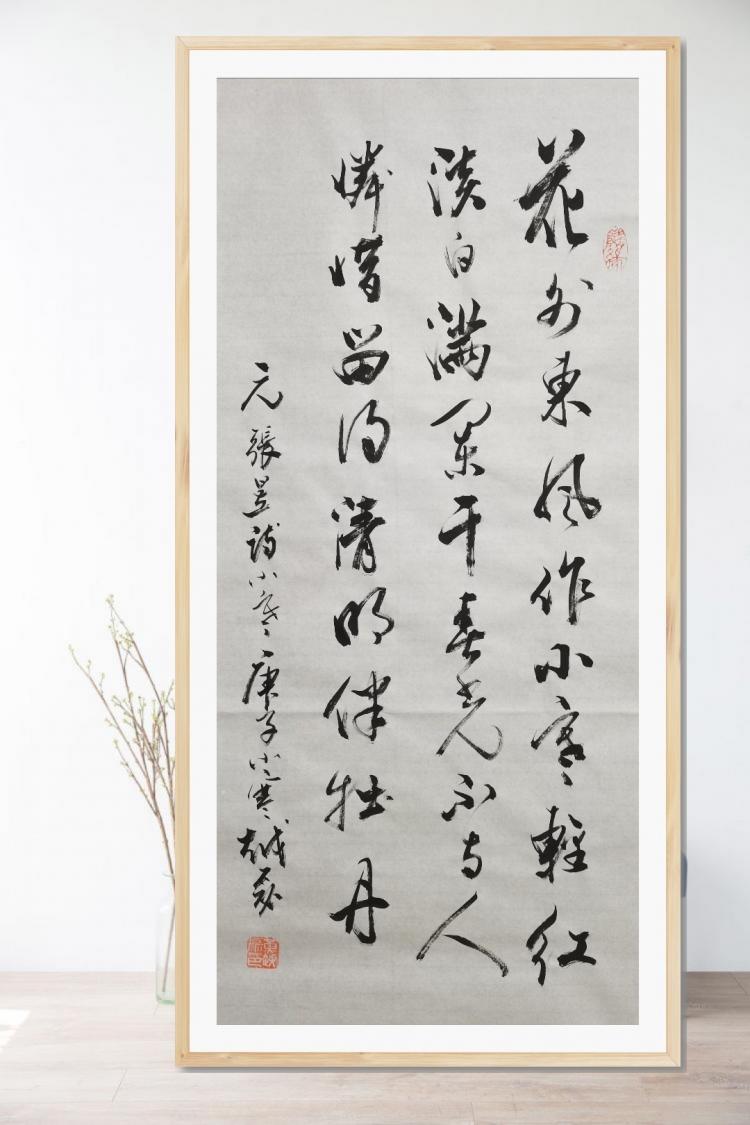 花外東風作小寒輕紅
淡白滿闌干春光不与人
憐惜留得清明伴牡丹
元張昱詩小寒庚子小寒越